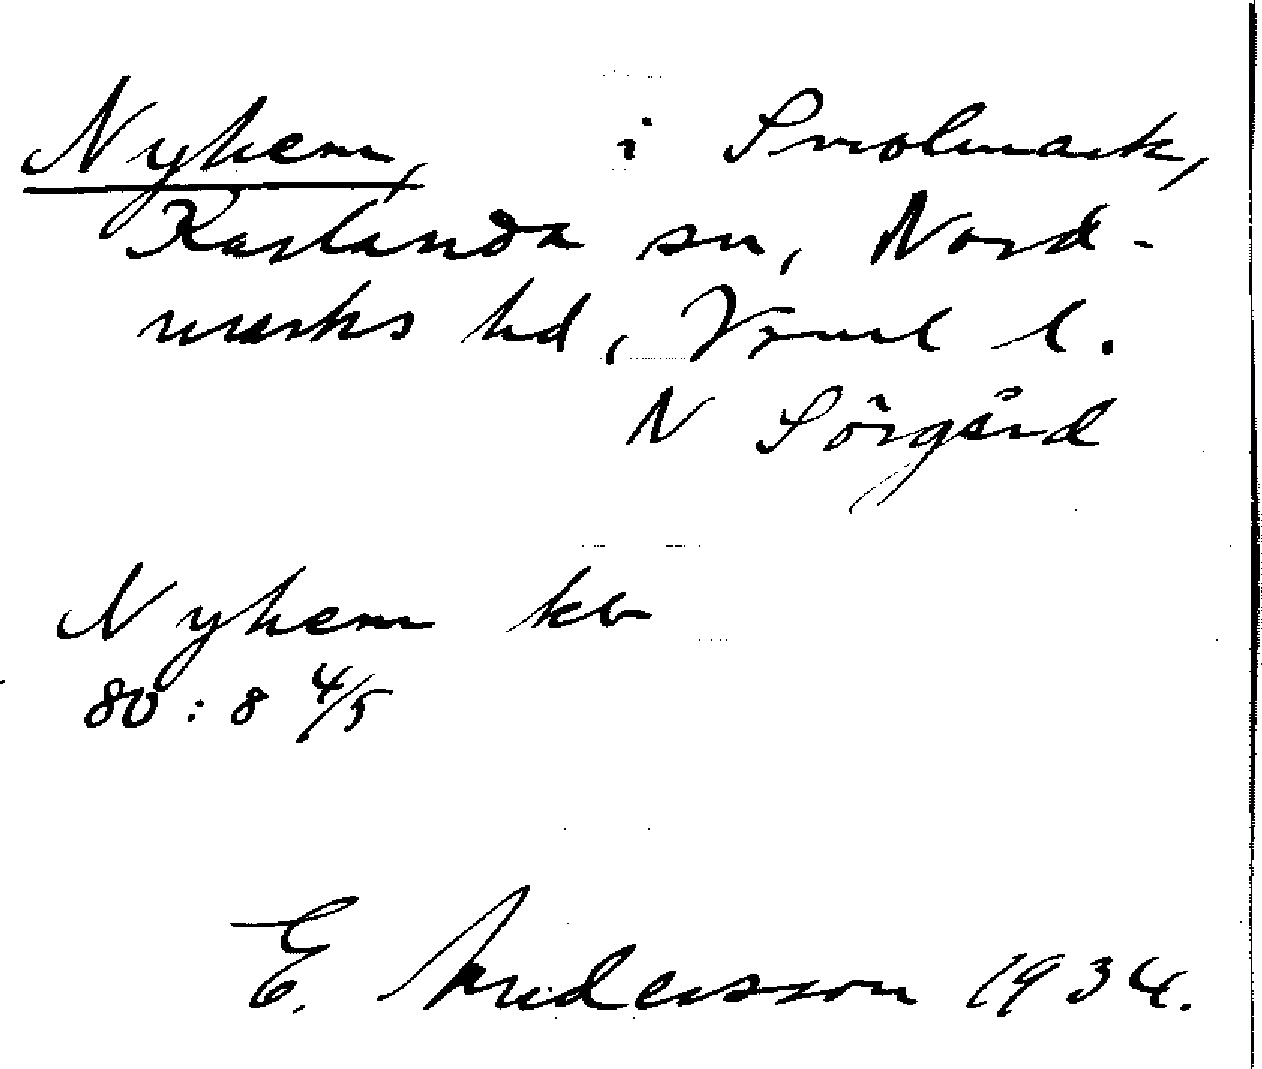 Nyhem, i Smolmark,
Karlanda sn, Nord-
marks hd, Vrml l.
N Sörgård
Nyhem kb
80:8 4/5
E. Andersson 1934.